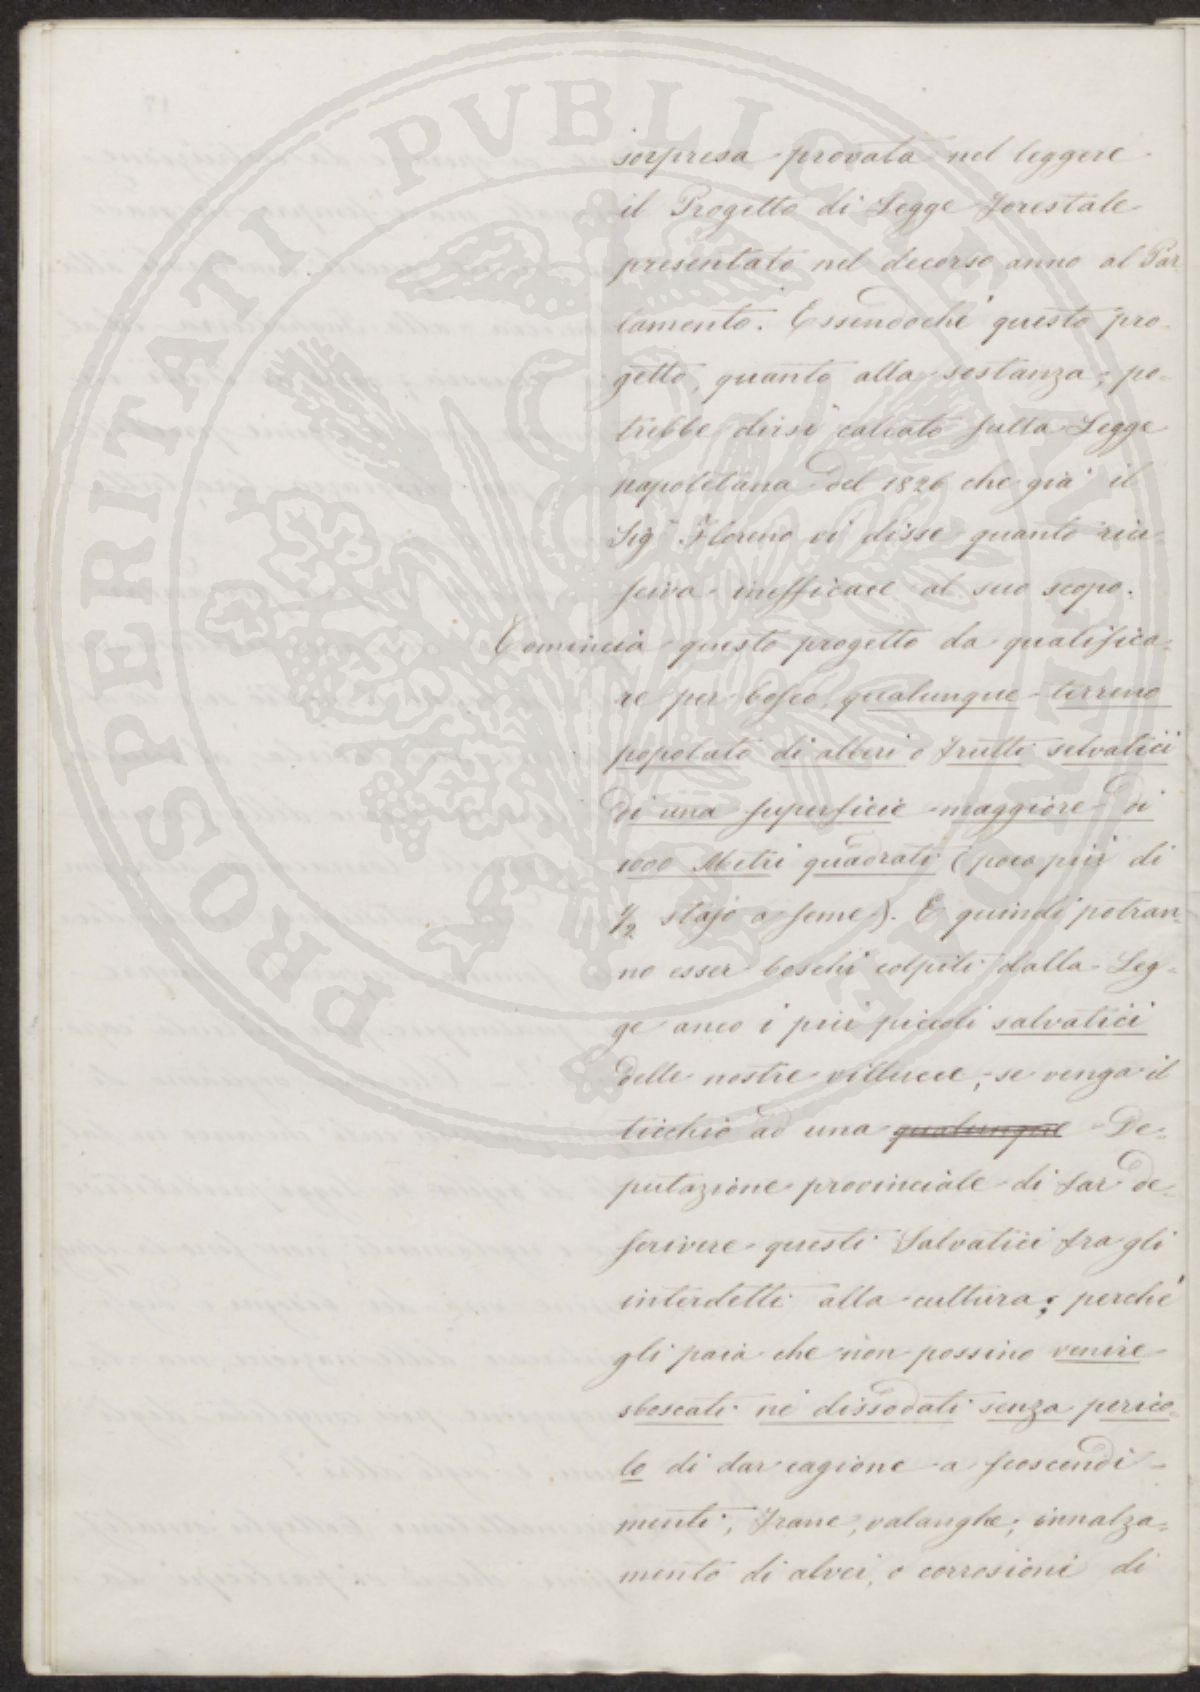 sorpresa provata nel leggere
il Progetto di Legge forestale
presentato nel decorso anno al Par
lamento. Essendochè questo pro-
getto, quanto alla sostanza, po-
trebbe dirsi calcato sulla Legge
napoletana del 1826 che già il
Sig.r Floreno vi disse quanto riu-
sciva inefficace al suo scopo.
Comincia questo progetto da qualifica-
re per bosco, qualunque terreno
popolato di alberi o frutti selvatici
di una superficie maggiore di
1000 Metri quadrati (poco più di
1/2 stajo a seme). E quindi potran-
no esser boschi colpiti dalla Leg-
ge anco i più piccoli salvatici
delle nostre villucce, se venga il
ticchio ad una qualunque De-
putazione provinciale di far de-
scrivere questi Salvatici fra gli
interdetti alla cultura; perchè
gli paia che non possino venire
sboscati nè dissodati senza perico-
lo di dar cagione a scoscendi-
menti, frane, valanghe, innalza-
mento di alvei, o corrosioni di
PROSPERITATI PVBLICAE AVGENDAE